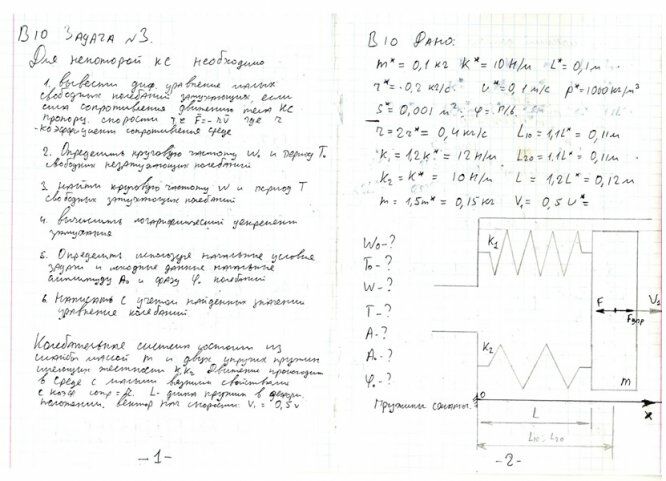 В10 Задача №3.
Для некоторой КС необходимо
1. вывести диф. уравнение малых
свободных колебаний затухающих, если
сила сопротивления движению тела КС
пропорц. скорости F̄ = -rv̄ где r
-коэффициент сопротивления среде
2. Определить круговую частоту W₀ и период T₀
свободных незатухающих колебаний
3. найти круговую частоту W и период T
свободных затухающих колебаний
4. вычислить логарифмический декремент
затухания
5. Определить используя начальные условия
задачи и исходные данные начальные
амплитуду A₀ и фазу φ₀ колебаний
6. Написать с учетом найденных значений
уравнение колебаний
Колебательная система состоит из
массой m и двух упругих пружин
имеющих жесткости K₁ K₂ Движение происходит
в среде с малыми вязкими свойствами
с коэф сопр = r. L- длина пружин в
положении. вектор нач скорости V₁ = 0,5v
-1-
В10 Дано:
m* = 0,1 кг K* = 10 Н/м L* = 0,1 м
r* = 0,2 кг/с v* = 0,1 м/с ρ* = 1000 кг/м³
S* = 0,001 м² φ = π/6
r = 2r* = 0,4 кг/с L₁₀ = 1,1L* = 0,11м
K₁ = 1,2K* = 12 Н/м L₂₀ = 1,1L* = 0,11м
K₂ = K* = 10 Н/м L = 1,2L* = 0,12м
m = 1,5m* = 0,15 кг V₁ = 0,5 v* =
W₀-?
T₀-?
W-?
T-?
A-?
A₀-?
φ₀-?
Пружины сжаты.
K₁
K₂
F
Fупр
V₁
m
0
x
L
L₁₀ - L₂₀
-2-